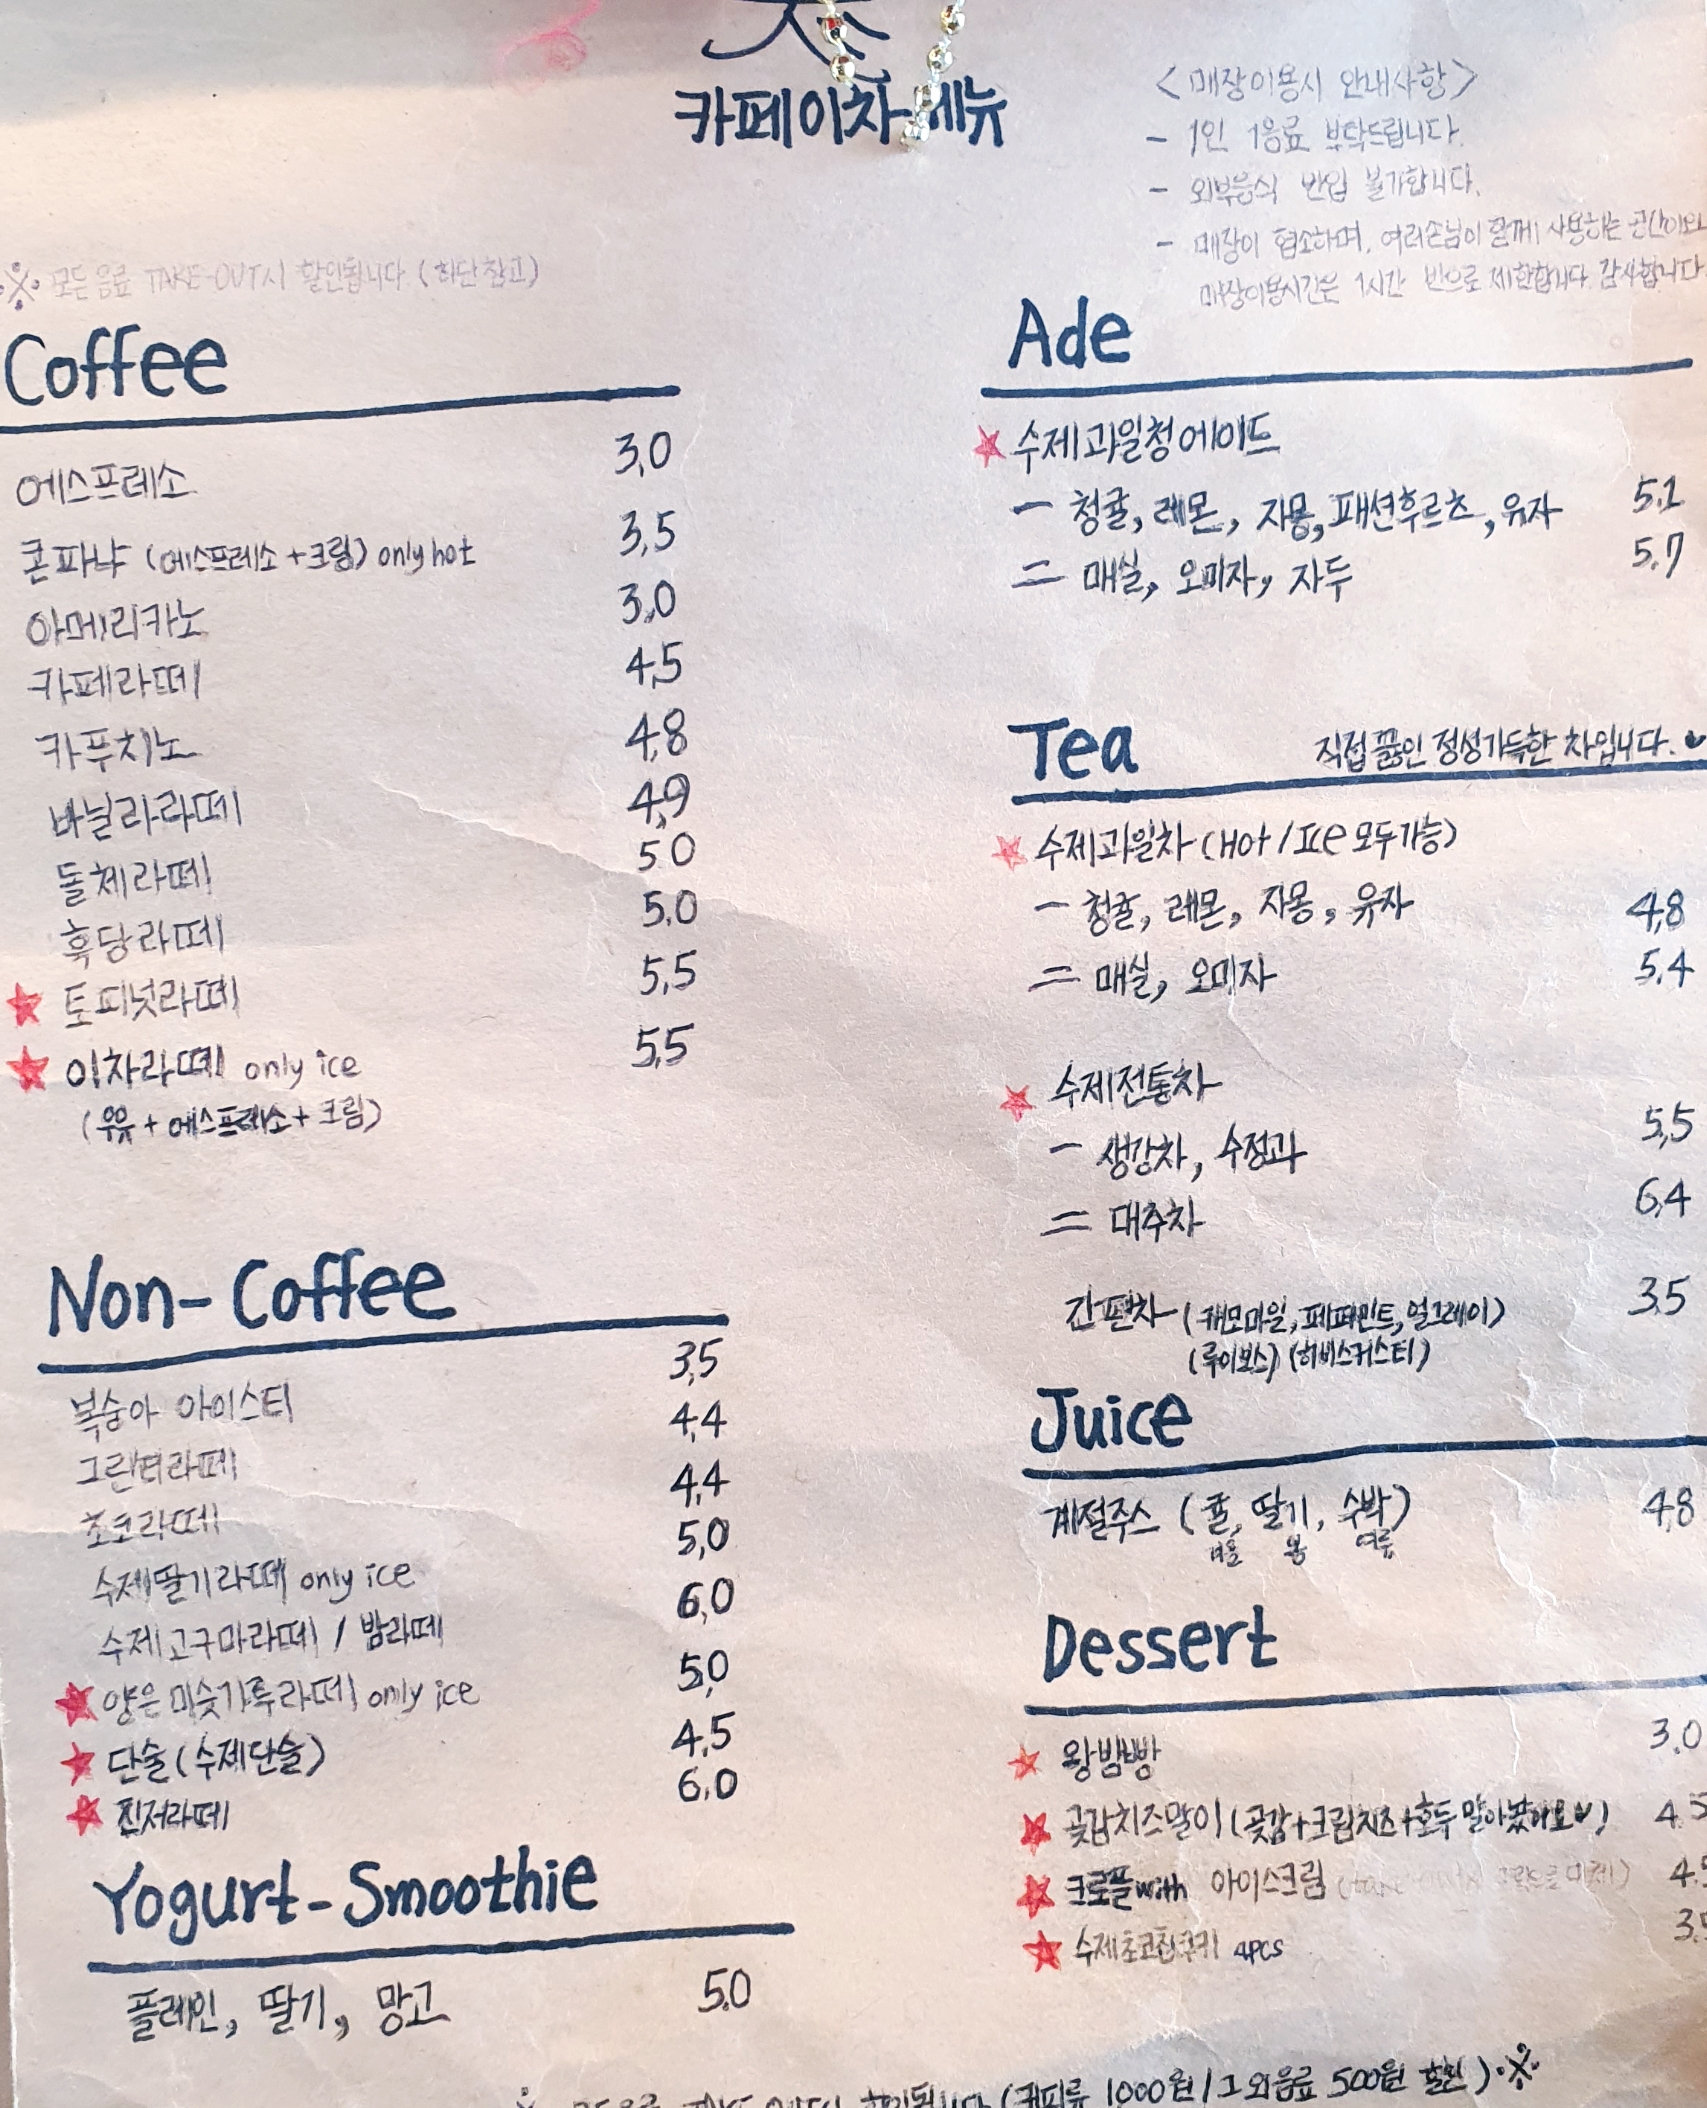 카페이차 메뉴
<매장이용시 안내사항>
- 1인 1음료 부탁드립니다.
- 외부음식 반입 불가합니다.
- 매장이 협소하며, 여러손님이 함께 사용하는 공간이므로
매장이용시간은 1시간 반으로 제한합니다. 감사합니다.
※ 모든 음료 TAKE-OUT시 할인됩니다 (하단참고)
Coffee
에스프레소 3,0
콘파냐 (에스프레소+크림) only hot 3,5
아메리카노 3,0
카페라떼 4,5
카푸치노 4,8
바닐라라떼 4,9
돌체라떼 5.0
흑당라떼 5,0
★ 토피넛라떼 5,5
★ 이차라떼 only ice 5,5
(우유+에스프레소+크림)
Non-Coffee
복숭아 아이스티 3,5
그린티라떼 4,4
초코라떼 4,4
수제딸기라떼 only ice 5,0
수제고구마라떼 / 밤라떼 6,0
★ 양은미숫가루라떼 only ice 5,0
★ 단술(수제단술) 4,5
★ 진저라떼 6,0
Yogurt-Smoothie
플레인, 딸기, 망고 5.0
Ade
★ 수제과일청에이드
一 청귤, 레몬, 자몽, 패션후르츠, 유자 5.1
二 매실, 오미자, 자두 5.7
Tea 직접 끓인 정성가득한 차입니다.
★ 수제과일차 (Hot/Ice 모두가능)
一 청귤, 레몬, 자몽, 유자 4,8
二 매실, 오미자 5.4
★ 수제전통차
一 생강차, 수정과 5,5
二 대추차 6,4
간편차 (캐모마일, 페퍼민트, 얼그레이) 3,5
(루이보스) (히비스커스티)
Juice
계절주스 (귤, 딸기, 수박) 4,8
겨울 봄 여름
Dessert
★ 왕밤빵 3.0
★ 곶감치즈말이 (곶감+크림치즈+호두 말아봤어요♥) 4.5
★ 크로플with 아이스크림 4.5
★ 수제초코칩쿠키 4pcs
할인됩니다 (커피류 1000원/그외음료 500원 할인) ※